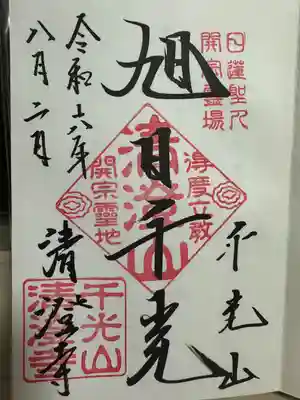 日蓮聖人
開宗靈場
千光山
得度立教
旭日千光
清澄山
開宗靈地
清澄寺
千光山
清澄寺
令和六年
八月二日